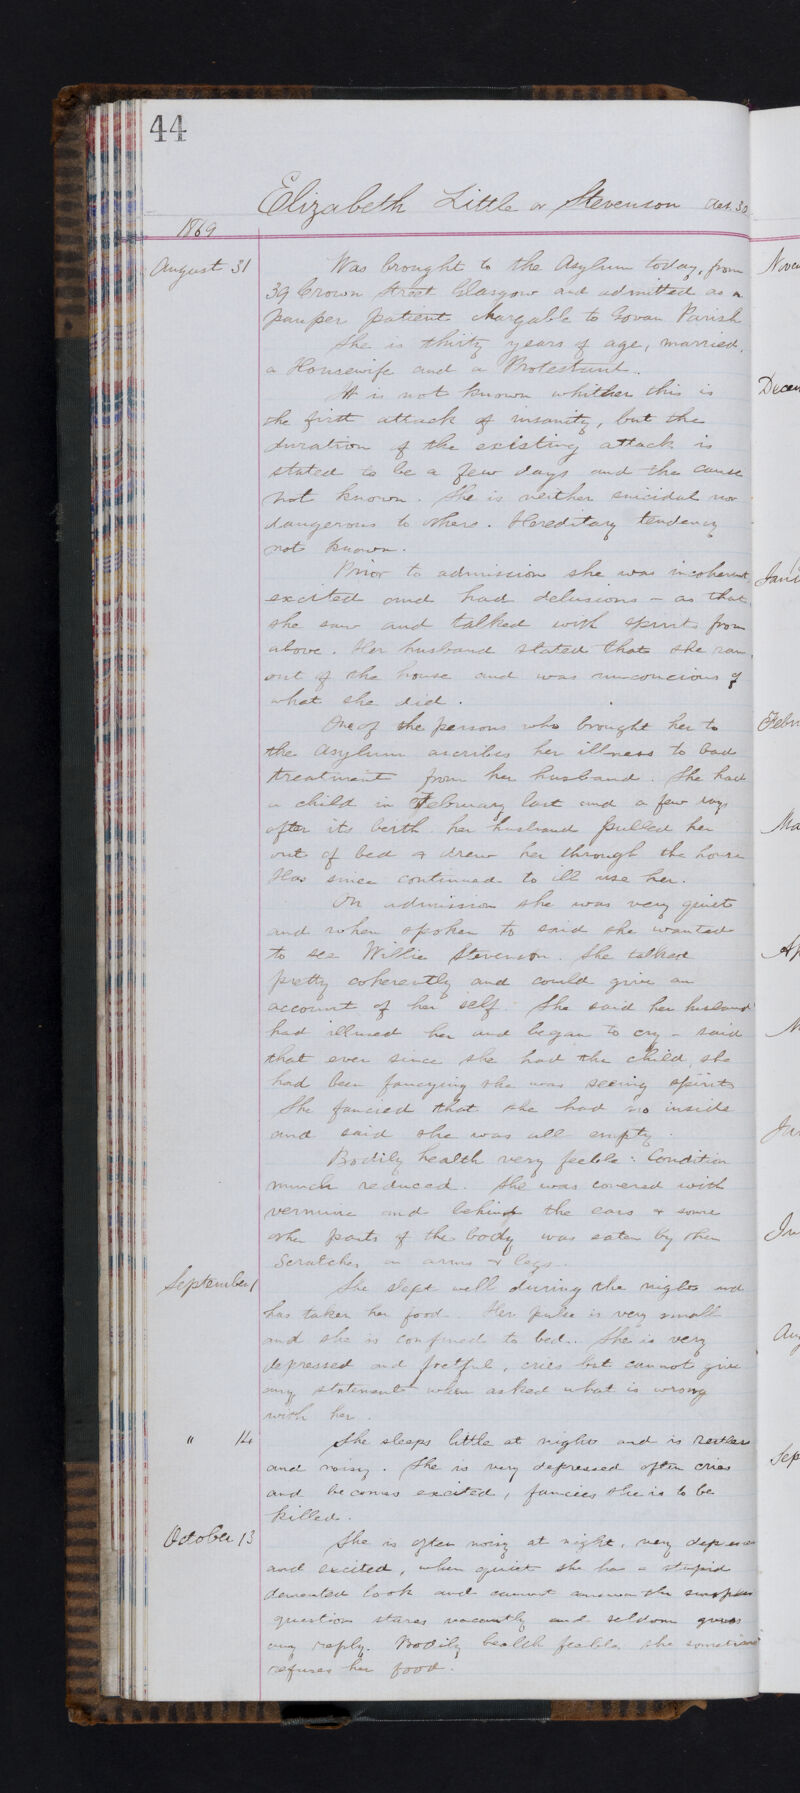 44
Elizabeth Little or Stevenson Aet. 30
1869
August 31 Was brought to the Asylum today, from
39 Crown Street Glasgow and admitted as a
pauper patient chargable to Govan Parish
She is thirty years of age, married,
a Housewife and a Protestant.
It is not known whither this is
the first attack of insanity, but the
duration of the existing attack is
stated to be a few days and the cause
not known. She is neither suicidal nor
dangerous to others. Hereditary tendency
not known.
Prior to admission she was incoherent
excited and had delusions - as that
she saw and talked with spirits from
above. Her husband stated that she ran
out of the house and was unconcious of
what she did.
One of the persons who brought her to
the Asylum ascribes her illness to bad
treatment from her husband. She had
a child in February last and a few days
after its birth her husband pulled her
out of bed & drew her through the house
Has since continued to ill use her.
On admission she was very quiet
and when spoken to said she wanted
to see Willie Stevenson. She talked
pretty coherently and could give an
account of her self. She said her husband
had illused her and began to cry - said
that ever since she had the child she
had been fancying she was seeing spirits
She fancied that she had no inside
and said she was all empty.
Bodily health very feeble: Condition
much reduced. She was covered with
vermine and behind the ears & some
other parts of the body was eaten by them
Scratches on arms & legs.
September 1 She slept well during the night and
has taken her food. Her pulse is very small
and she is confined to bed. She is very
depressed and fretful, cries but cannot give
any statement when asked what is wrong
with her.
" 14 She sleeps little at night and is restless
and noisy. She is very depressed often cries
and becomes excited, fancies she is to be
killed.
October 13 She is often noisy at night, very depressed
and excited, when quiet she has a stupid
demented look and cannot answer the simplest
question stares vacantly and seldom gives
any reply. Bodily health feeble she sometimes
refuses her food.